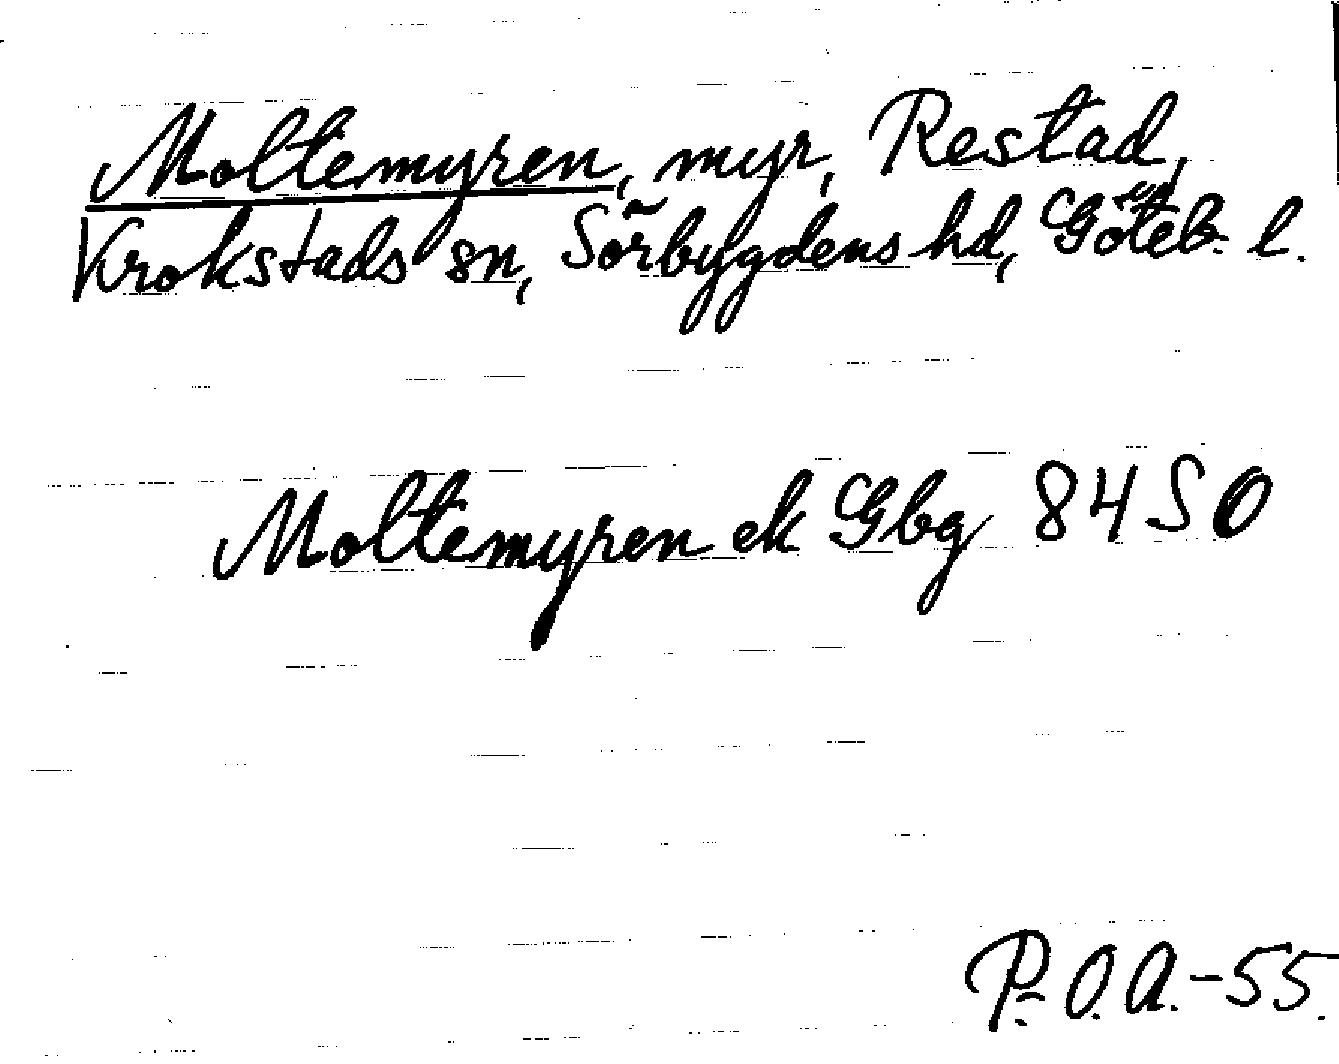 Moltemyren, myr, Restad,
Krokstads sn, Sörbygdens hd, Göteb. l.
Moltemyren ek Gbg 8450
P.O.A.-55.